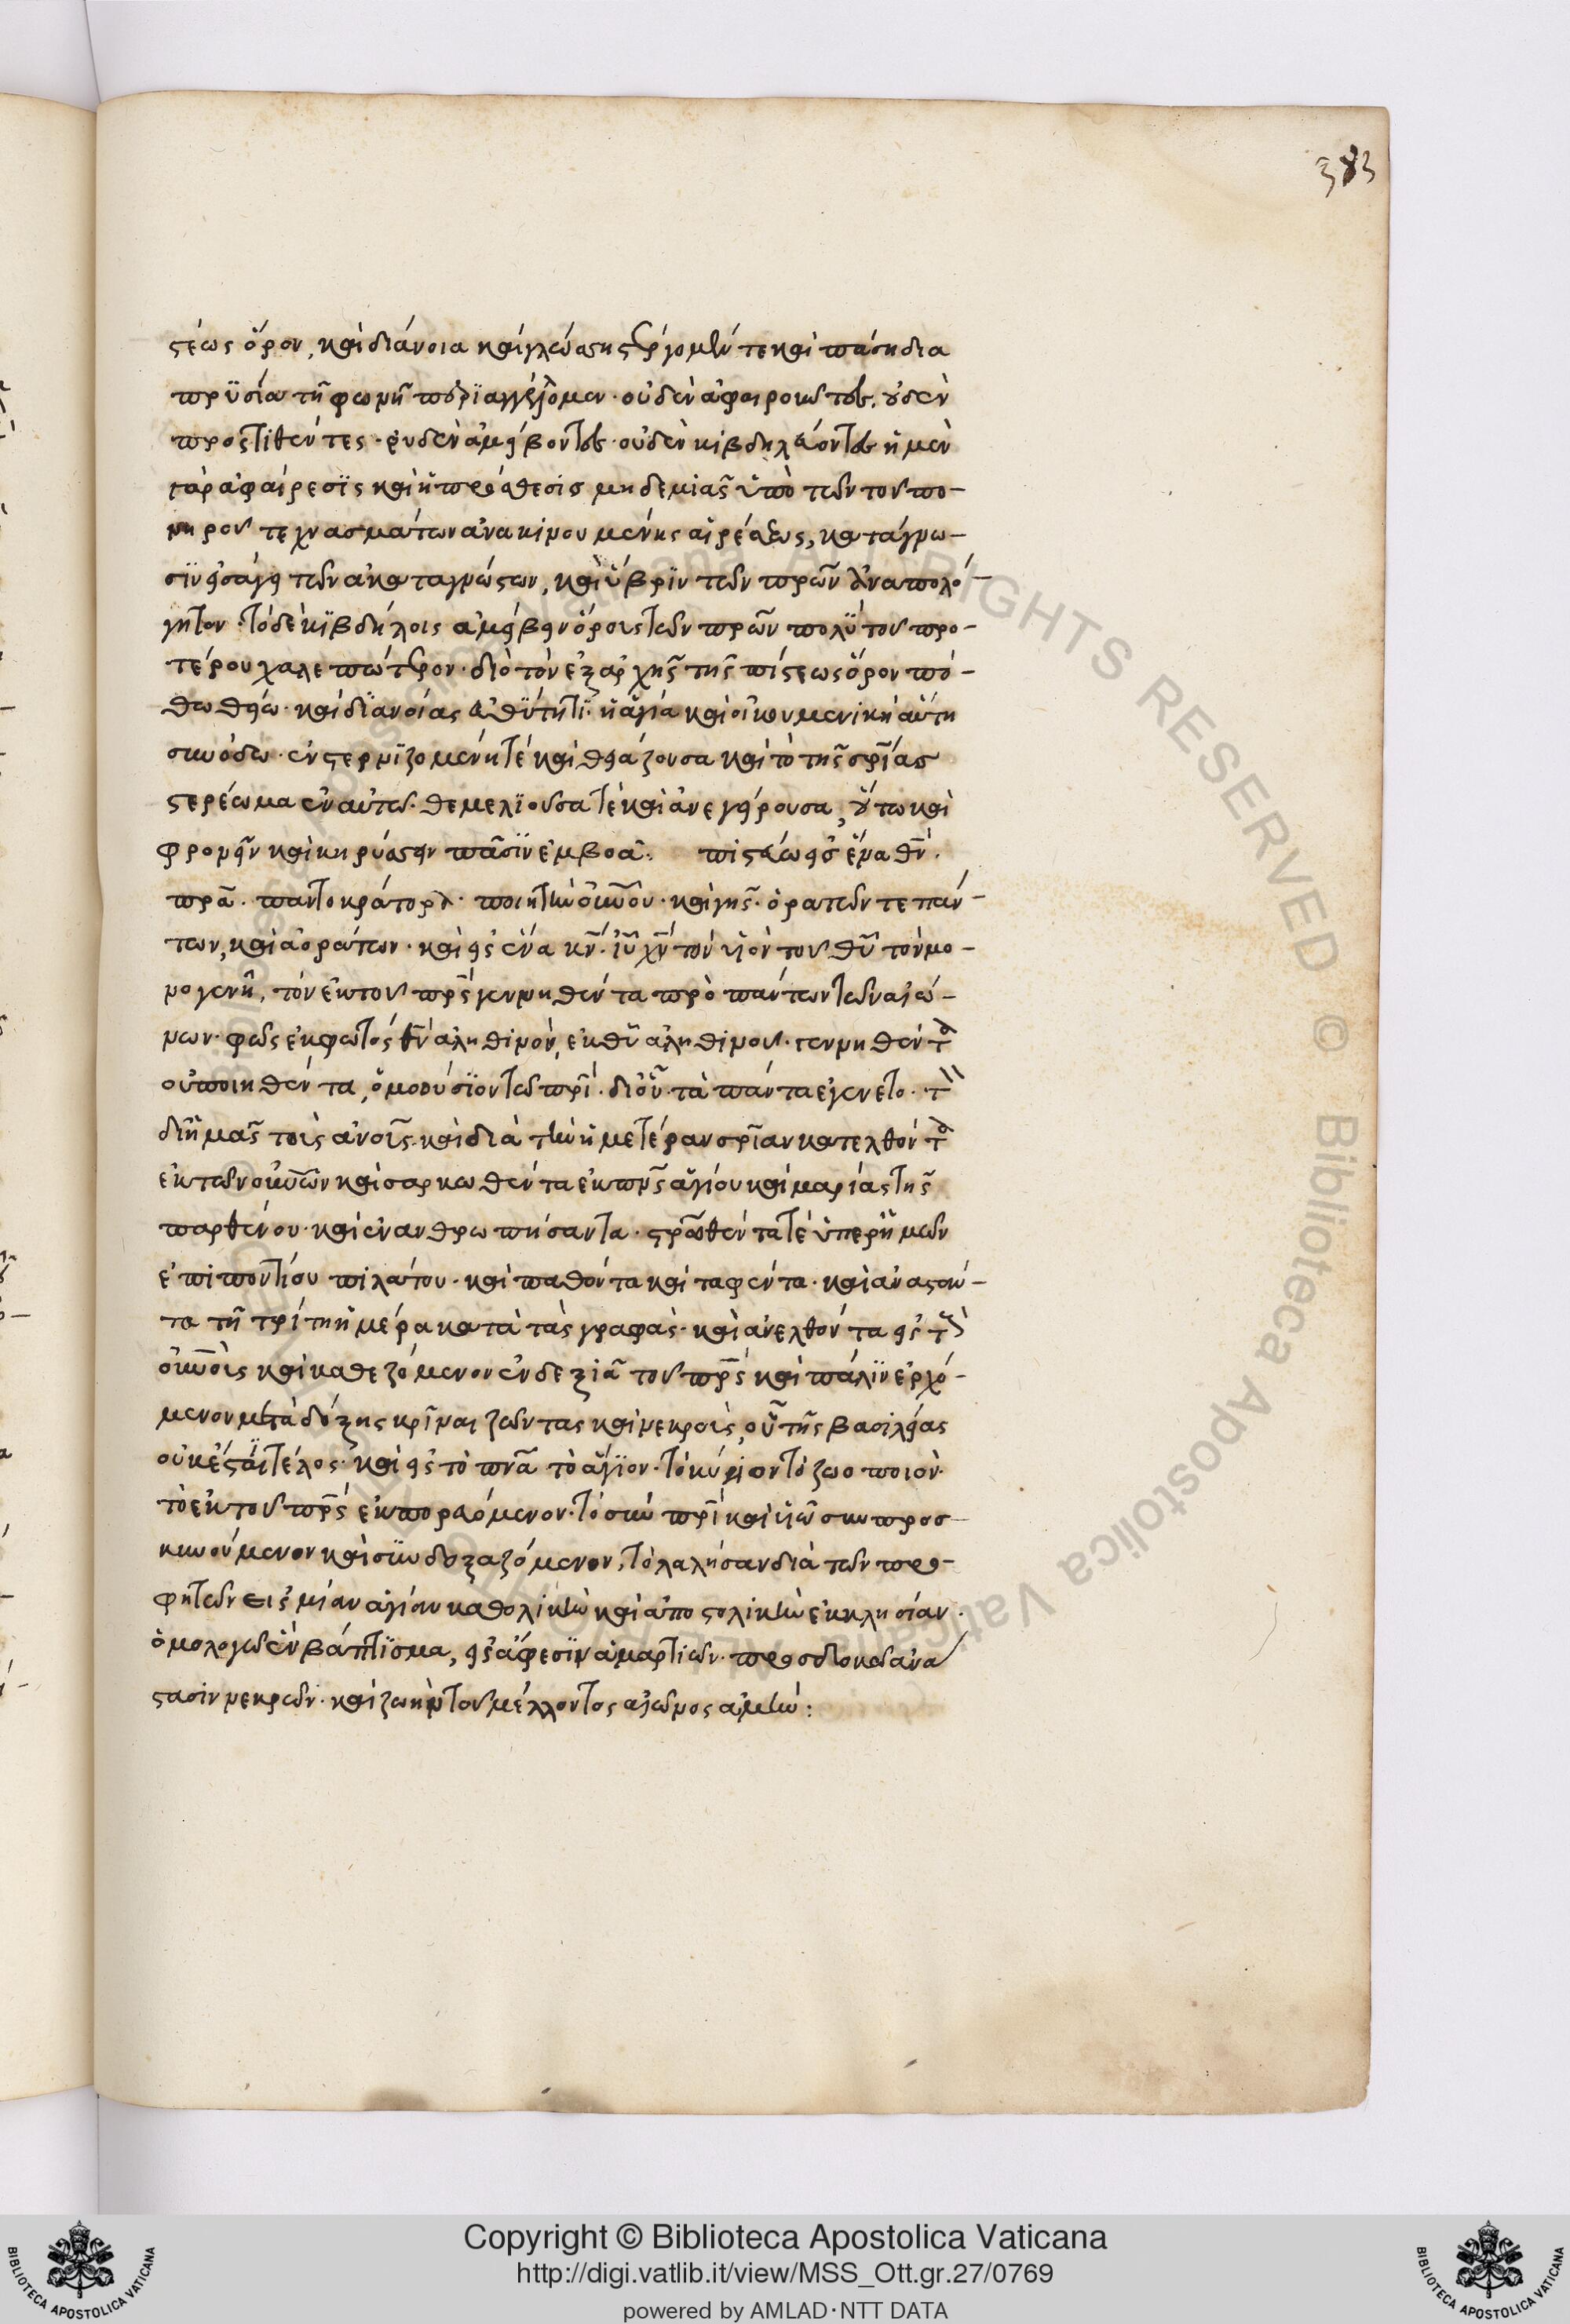 383
στέως ὅρον, καὶ διάνοια καὶ γλώσση στέργομέν τε καὶ πάση δια
πρϋσία τῆ φωνῆ περϊαγγέλομεν· οὐδὲν ἀφαιροῦντες. οὐδὲν
προστιθέντες· οὐδὲν ἀμείβοντες· οὐδὲν κιβδηλεύοντες ἡ μὲν
γὰρ ἀφαίρεσϊς καὶ ἡ πρόσθεσις μηδεμιᾶς ὑπὸ τῶν τοῦ πο-
νηροῦ τεχνασμάτων ἀνακινουμένης αἱρέσεως, κατάγνω-
σϊν εἰσάγει τῶν ἀκαταγνώστων, καὶ ὕβρϊν τῶν πρων ἀναπολό-
γητον· τὸ δὲ κϊβδήλοις ἀμείβειν ὅρους τῶν πρων πολὺ τοῦ προ-
τέρου χαλεπώτερον· διὸ τὸν ἐξ ἀρχῆς τῆς πίστεως ὅρον πό-
θω θείω· καὶ διανοίας εὐθύτητϊ· ἡ ἁγία καὶ οἰκουμενικὴ αὕτη
σύνοδος· ἐνστερνϊζομένη τε καὶ θειάζουσα καὶ τὸ τῆς σριας
στερέωμα ἐν αὐτῶ· θεμελϊοῦσα τὲ καὶ ἀνεγείρουσα, οὕτω καὶ
φρονεῖν καὶ κηρύσσειν πᾶσϊν ἐμβοᾶ. πιστεύω εἰς ἕνα θν.
πρα. παντοκράτορα· ποιητὴν οὐνου· καὶ γῆς· ὁρατῶν τε πάν-
των, καὶ ἀοράτων· καὶ εἰς ἕνα κν. ιυ χν τὸν υἱὸν τοῦ θυ τὸν μο-
νογενῆ, τὸν ἐκ τοῦ πρς γεννηθέντα πρὸ πάντων τῶν αἰώ-
νων· φῶς ἐκ φωτός θν ἀληθινὸν, ἐκ θυ ἀληθινοῦ· γεννηθέντα
οὐ ποιηθέντα, ὁμοούσϊον τῶ πρι· δι οὗ τὰ πάντα ἐγένετο· τὸν
δι ἡμᾶς τοὺς ἀνους καὶ διὰ τὴν ἡμετέραν σριαν κατελθόντα
ἐκ τῶν οὐνων καὶ σαρκωθέντα ἐκ πνς ἁγίου καὶ μαρίας τῆς
παρθένου· καὶ ἐνανθρωπήσαντα· στρωθέντα τὲ ὑπὲρ ἡμῶν
ἐπὶ ποντίου πιλάτου· καὶ παθόντα καὶ ταφέντα· καὶ ἀναστάν-
τα τῆ τρίτη ἡμέρα κατὰ τὰς γραφὰς· καὶ ἀνελθόντα εἰς τοὺς
οὐνους καὶ καθεζόμενον ἐν δεξιᾶ τοῦ πρς καὶ πάλϊν ἐρχό-
μενον μετὰ δόξης κρῖναι ζῶντας καὶ νεκρούς, οὗ τῆς βασιλείας
οὐκ ἔσται τέλος· καὶ εἰς τὸ πνα τὸ ἅγϊον· τὸ κύριον τὸ ζωοποιὸν·
τὸ ἐκ τοῦ πρς ἐκπορευόμενον· τὸ σὺν πρι καὶ υιω συμπροσ-
κυνούμενον καὶ συνδοξαζόμενον, τὸ λαλῆσαν διὰ τῶν προ-
φητῶν εἰς μίαν ἁγίαν καθολικὴν καὶ ἀποστολικὴν ἐκκλησίαν.
ὁμολογῶ ἓν βάπτϊσμα, εἰς ἄφεσϊν ἁμαρτιῶν· προσδοκῶ ἀνά
στασιν νεκρῶν· καὶ ζωὴν τοῦ μέλλοντος αἰῶνος ἀμήν:
ALL RIGHTS RESERVED © Biblioteca Apostolica Vaticana
Copyright © Biblioteca Apostolica Vaticana
http://digi.vatlib.it/view/MSS_Ott.gr.27/0769
powered by AMLAD·NTT DATA
BIBLIOTECA APOSTOLICA VATICANA
BIBLIOTECA APOSTOLICA VATICANA